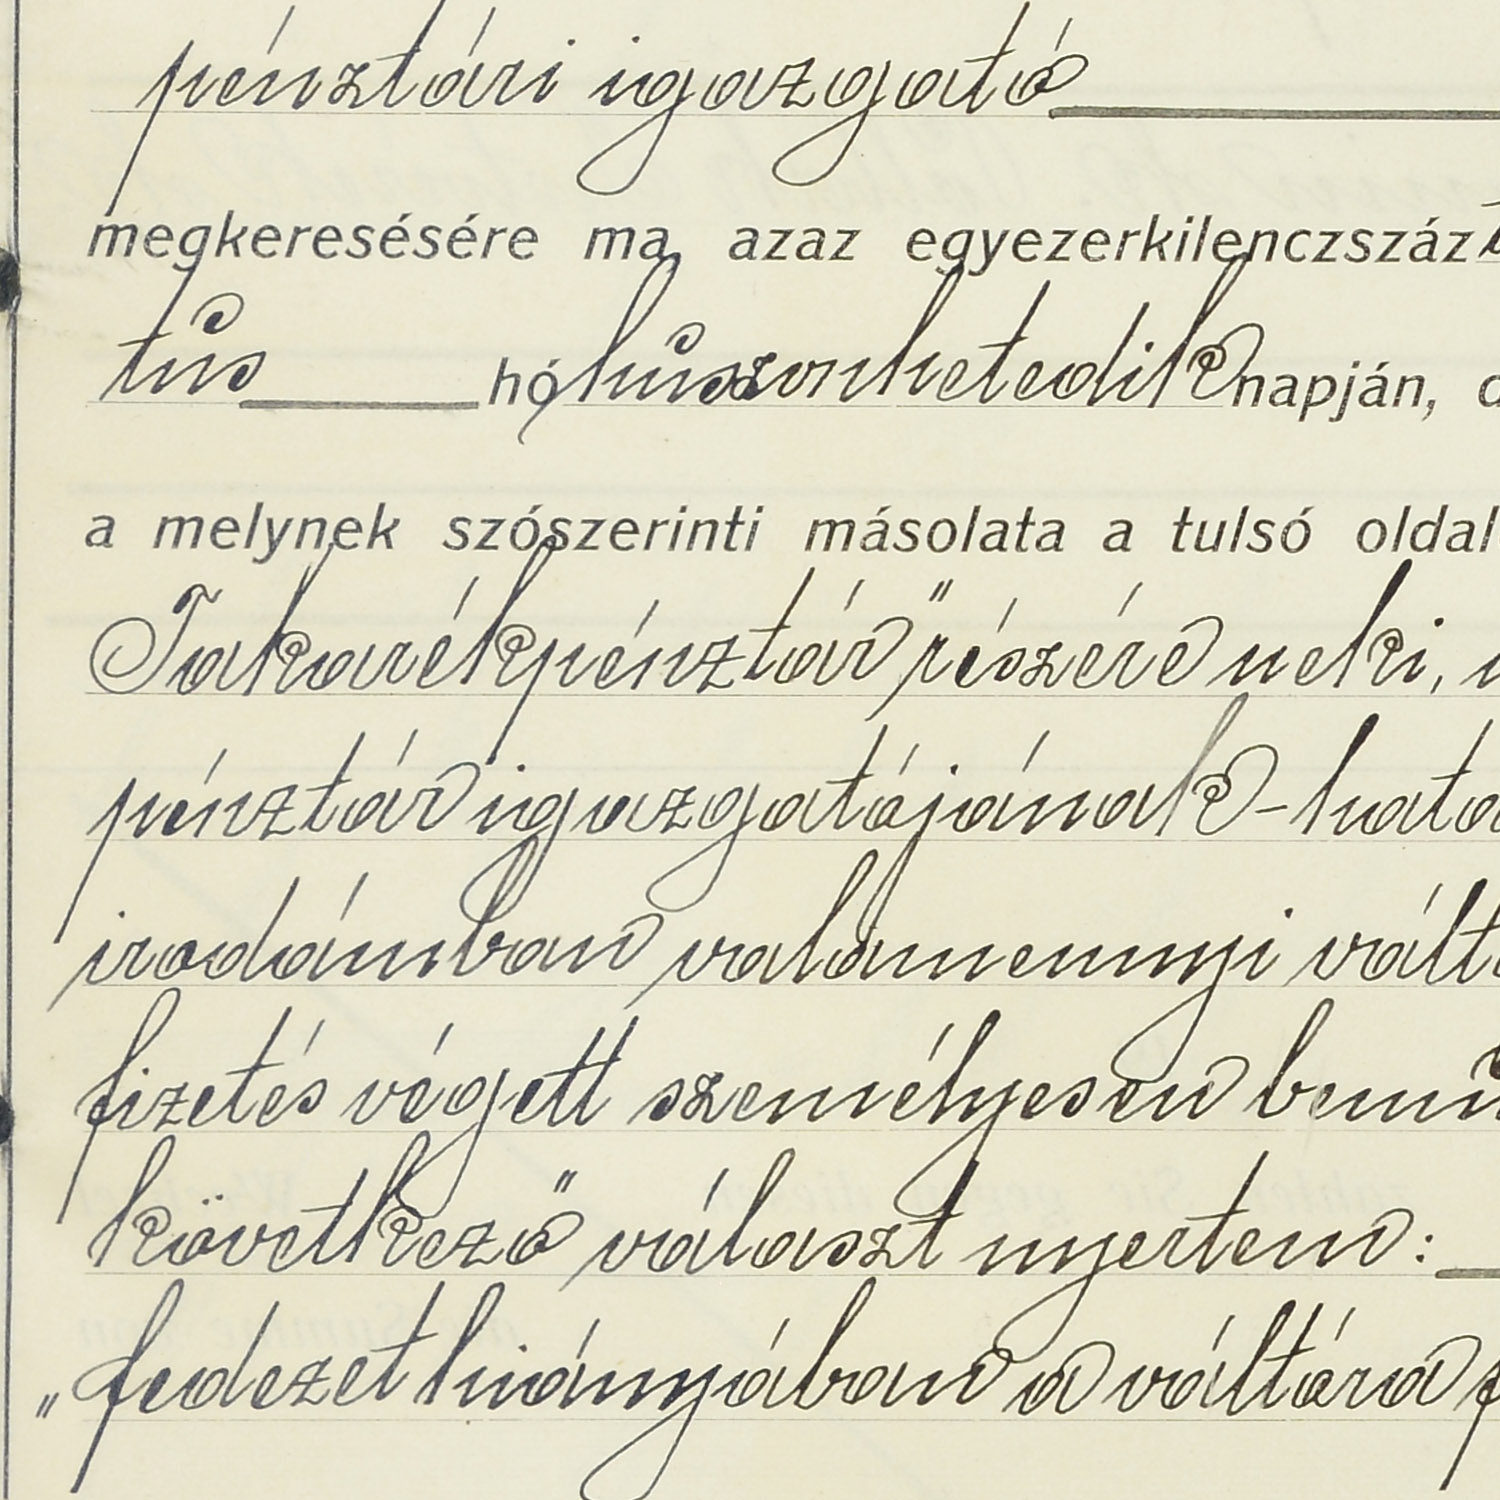 pénztári igazgató
megkeresésére ma, azaz egyezerkilenczszáz
tus hó huszonhetedik napján, d
a melynek szószerinti másolata a tulsó oldal
Takarékpénztár" részére neki,
pénztár igazgatójának - hata
irodámban valamennyi vált
fizetés végett személyesen bemu
következő választ nyertem:
„fedezet hiányában a váltóra f